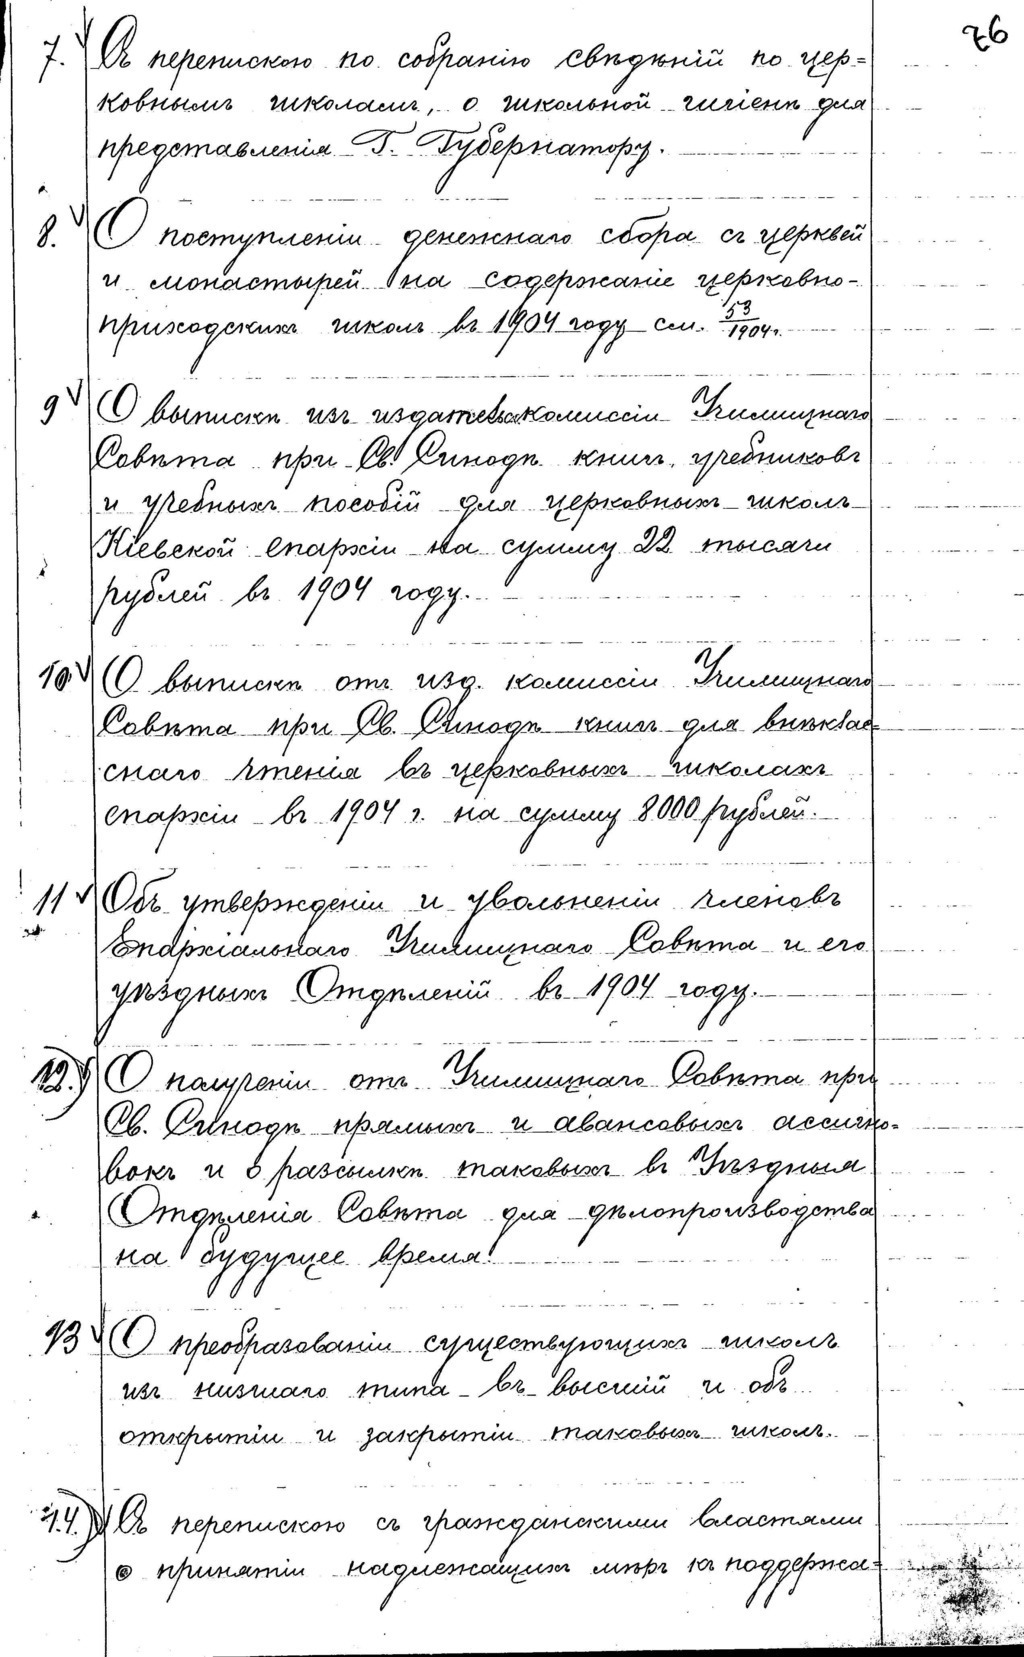 76
7. Съ перепискою по собранію свѣдѣній по цер=
ковнымъ школамъ, о школьной гигіенѣ для
представленія Г. Губернатору.
8. О поступленіи денежнаго сбора съ церквей
и монастырей на содержаніе церковно-
приходскихъ школъ въ 1904 году см. 53/1904 г.
9 О выпискѣ изъ издательск. комиссіи Училищнаго
Совѣта при Св. Синодѣ книгъ, учебниковъ
и учебныхъ пособій для церковныхъ школъ
Кіевской епархіи на сумму 22 тысячи
рублей въ 1904 году.
10 О выпискѣ отъ изд. комиссіи Училищнаго
Совѣта при Св. Синодѣ книгъ для внѣклас=
снаго чтенія въ церковныхъ школахъ
епархіи въ 1904 г. на сумму 8000 рублей.
11 Объ утвержденіи и увольненіи членовъ
Епархіальнаго Училищнаго Совѣта и его
уѣздныхъ Отдѣленій въ 1904 году.
12.) О полученіи отъ Училищнаго Совѣта при
Св. Синодѣ прямыхъ и авансовыхъ ассигно=
вокъ и о разсылкѣ таковыхъ въ Уѣздныя
Отдѣленія Совѣта для дѣлопроизводства
на будущее время.
13 О преобразованіи существующихъ школъ
изъ низшаго типа въ высшій и объ
открытіи и закрытіи таковыхъ школъ.
14.) Съ перепискою съ гражданскими властями
о принятіи надлежащихъ мѣръ къ поддержа=